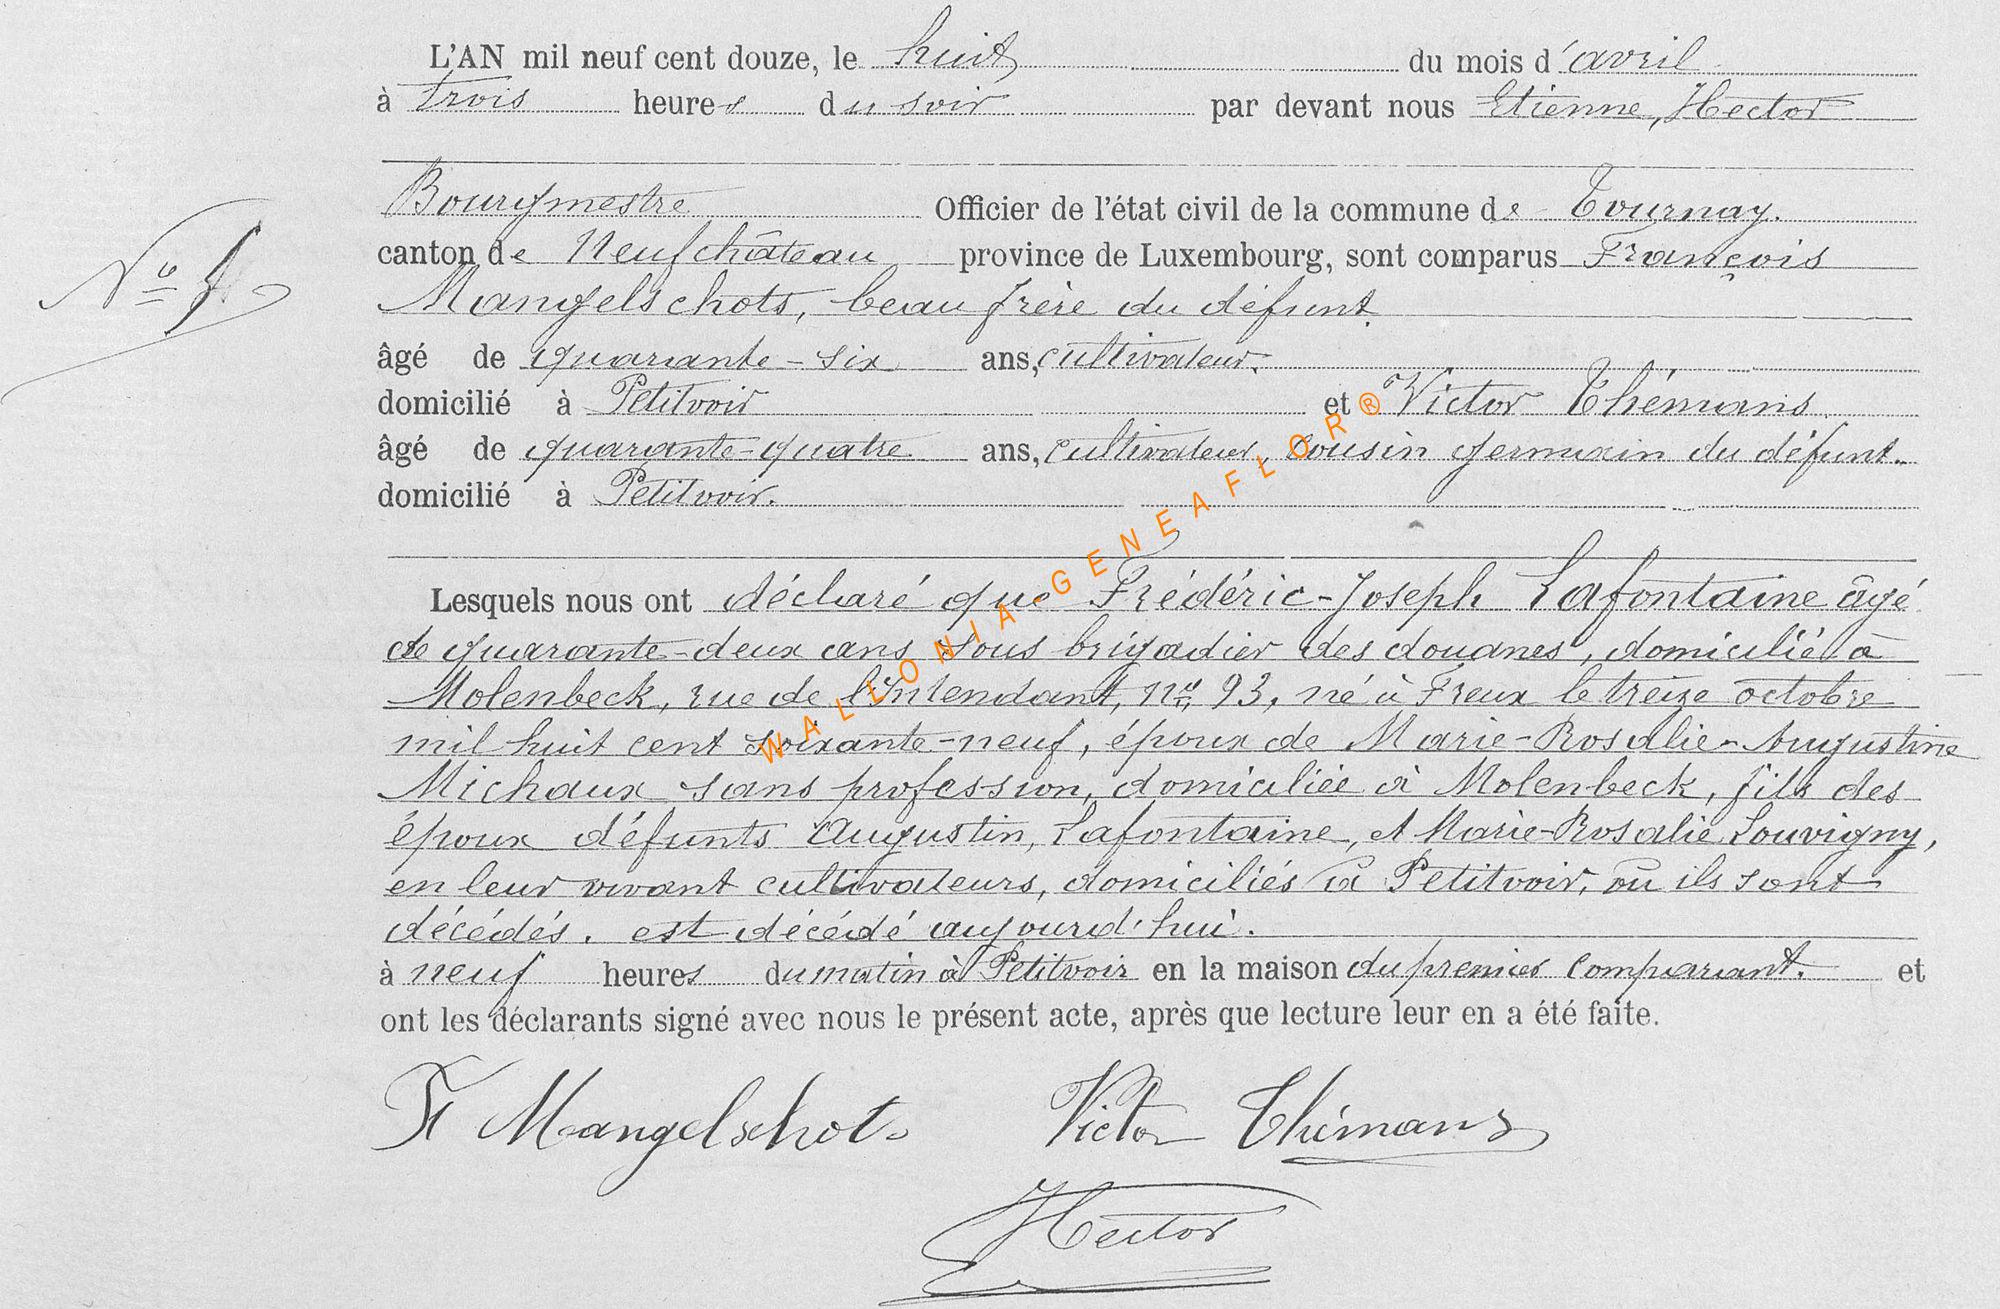 L'AN mil neuf cent douze, le huit du mois d'avril
à trois heures du soir par devant nous Etienne, Hector
Bourgmestre Officier de l'état civil de la commune de Tournay.
canton de Neufchâteau province de Luxembourg, sont comparus François
Mangelschots, beau frère du défunt
âgé de quarante-six ans, cultivateur.
domicilié à Petitvoir et Victor Thémans
âgé de quarante-quatre ans, cultivateur, cousin germain du défunt.
domicilié à Petitvoir.
Nº
Lesquels nous ont déclaré que Frédéric-Joseph Lafontaine âgé
de quarante-deux ans sous brigadier des douanes, domicilié à
Molenbeck, rue de l'Intendant, nº 93, né à Freux le treize octobre
mil huit cent soixante-neuf, époux de Marie-Rosalie-Augustine
Michaux sans profession, domiciliée à Molenbeck, fils des
époux défunts Augustin, Lafontaine, et Marie-Rosalie Louvigny,
en leur vivant cultivateurs, domiciliés à Petitvoir, où ils sont
décédés. est décédé aujourd'hui.
à neuf heures du matin à Petitvoir en la maison du premier comparant. et
ont les déclarants signé avec nous le présent acte, après que lecture leur en a été faite.
F Mangelschots Victor Thémans
Hector
WALLONIA-GENEAFLOR®